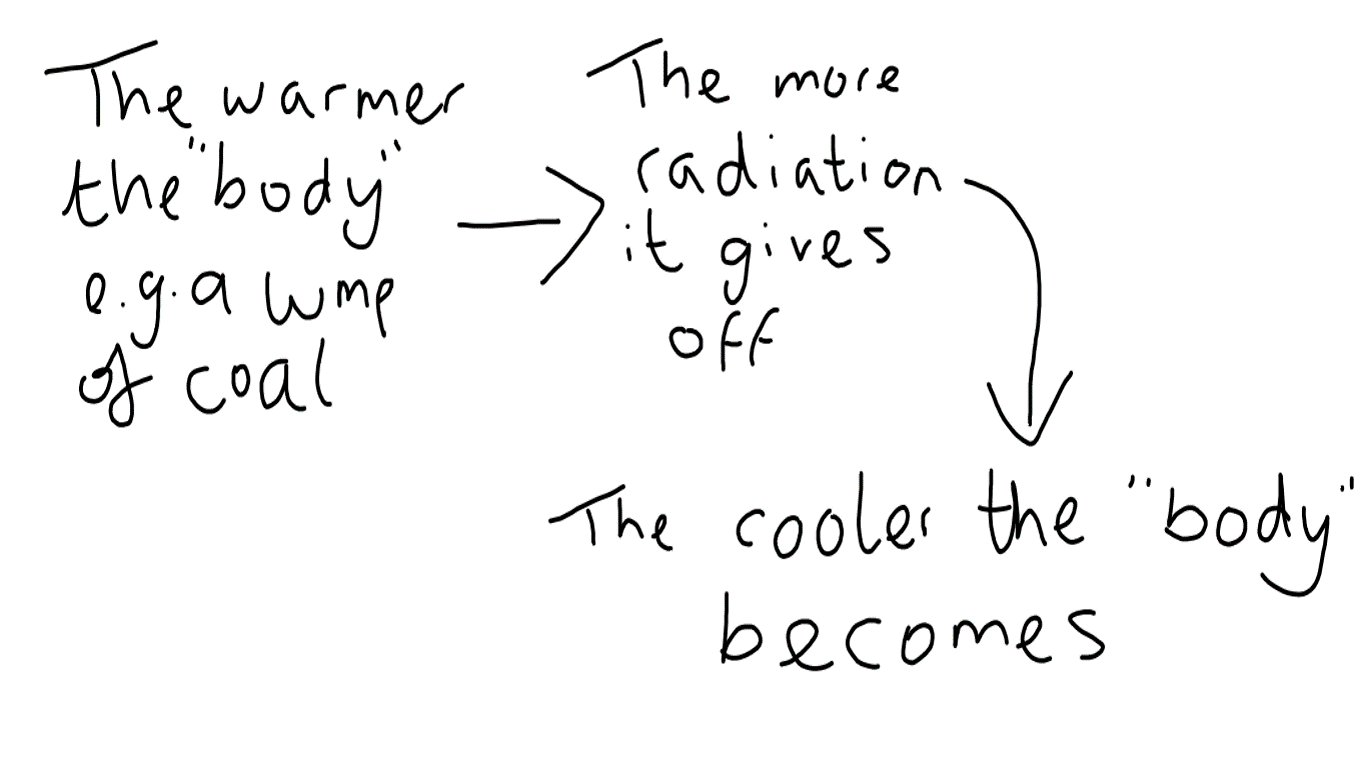 The warmer
the "body"
e.g. a lump
of coal
The more
radiation
it gives
off
The cooler the "body"
becomes